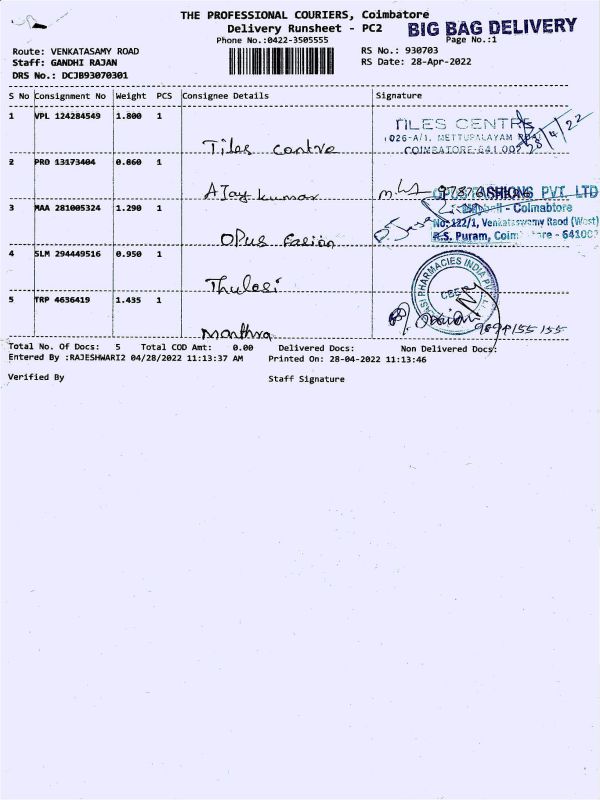 THE PROFESSIONAL COURIERS, Coimbatore
Delivery Runsheet - PC2
BIG BAG DELIVERY
Phone No.:0422-3505555
Page No.:1
Route: VENKATASAMY ROAD
Staff: GANDHI RAJAN
DRS No.: DCJB93070301
RS No.: 930703
RS Date: 28-Apr-2022
S No Consignment No Weight PCS Consignee Details Signature
1 VPL 124284549 1.800 1
TILES CENTRE
1026-A/1, METTUPALAYAM ROAD
COIMBATORE-641 002
28/4/22
Tiles centre
2 PRO 13173404 0.060 1
AJay kumar
3 MAA 281005324 1.290 1
OPUS FASHIONS PVT. LTD
- Coimabtore
No:122/1, Venkataswamy Raod (West)
R.S. Puram, Coimbatore - 64100
OPus Fasion
4 SLM 294449516 0.950 1
PHARMACIES INDIA
CBE
Thulasi
5 TRP 4636419 1.435 1
Manthra
Total No. Of Docs: 5 Total COD Amt: 0.00 Delivered Docs: Non Delivered Docs:
Entered By :RAJESHWARI2 04/28/2022 11:13:37 AM Printed On: 28-04-2022 11:13:46
Verified By Staff Signature